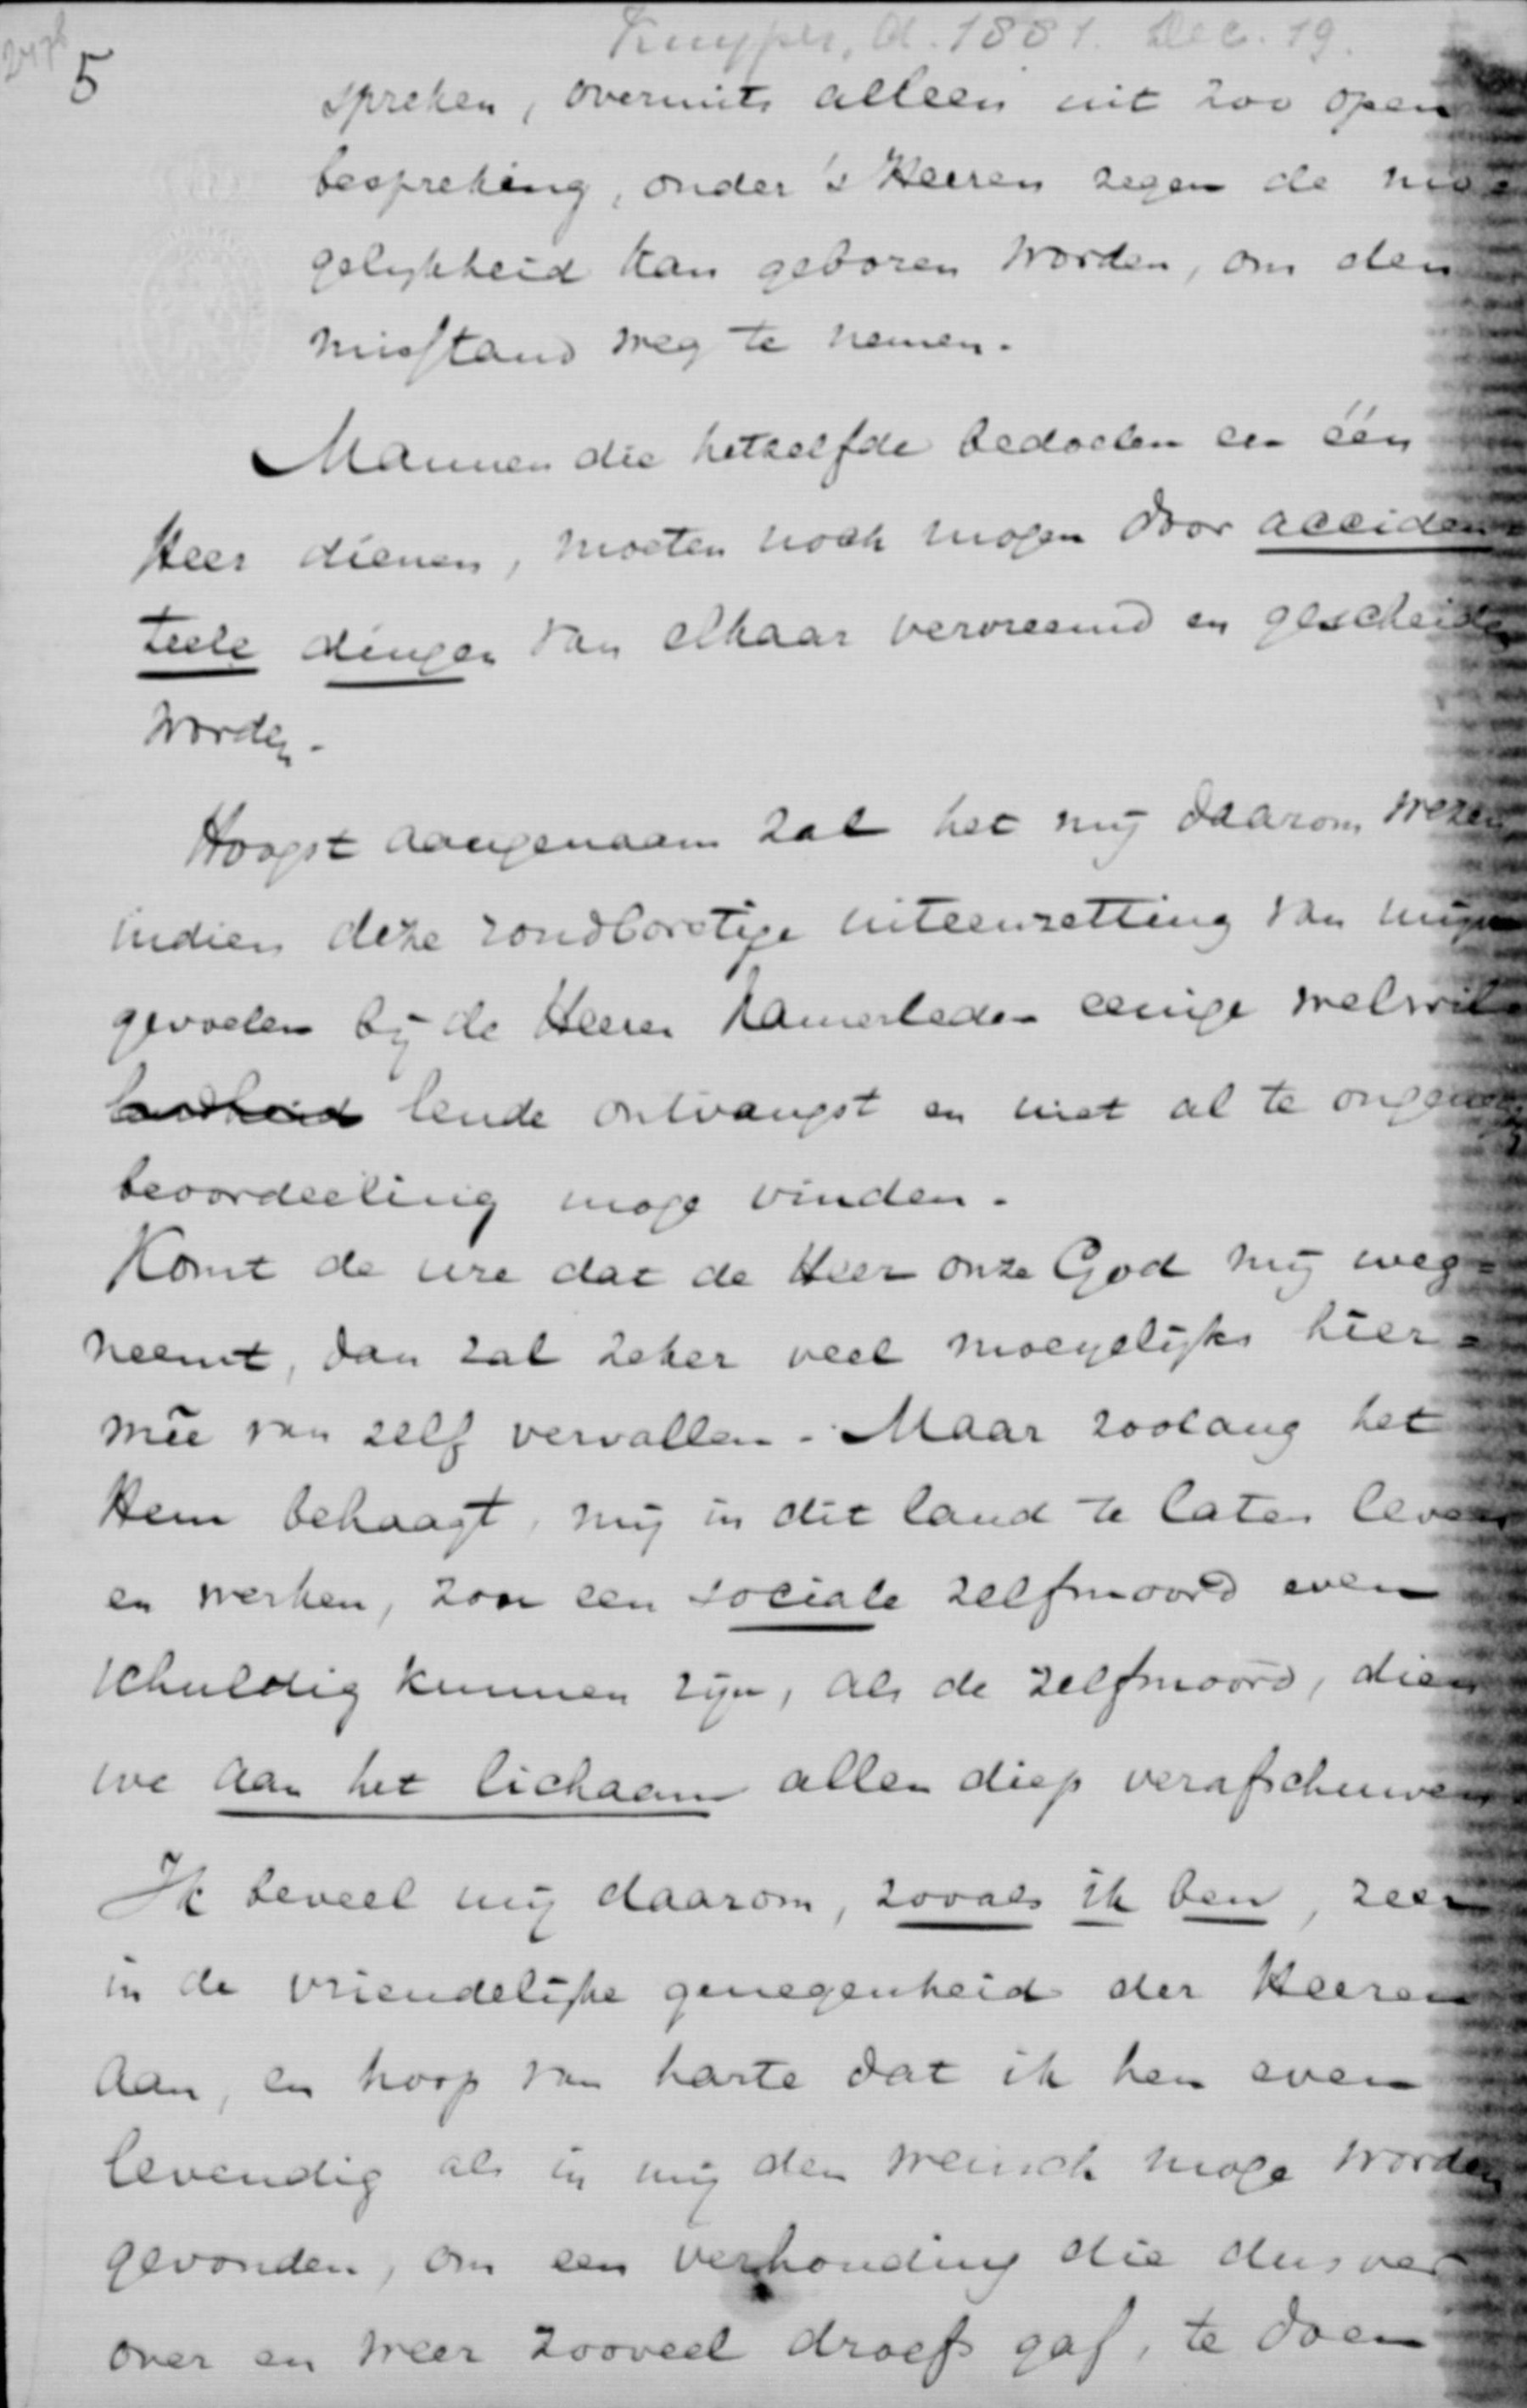 Kuyper, A. 1881. Dec. 19.
5
spreken, overmits alleen uit zoo open
bespreking, onder 's Heeren zegen de moe
gelijkheid kan geboren worden, om den
misstand weg te nemen.
Mannen die hetzelfde bedoelen en één
Heer dienen, moeten noch mogen door acciden
teele dingen van elkaar vervreemd en gescheiden
worden.
Hoogst aangenaam zal het mij daarom wezen
indien deze rondborstige uiteenzetting van mijn
gevoelen bij de Heeren Kamerleden eenige welwil
lende ontvangst en niet al te
beoordeeling moge vinden.
Komt de ure dat de Heer onze God mij weg=
neemt, dan zal zeker veel moeyelijks hier=
mêe van zelf vervallen. Maar zoolang het
Hem behaagt, mij in dit land te laten leven
en werken, zou een sociale zelfmoord even
schuldig kunnen zijn, als de zelfmoord, dien
we aan het lichaam allen diep verafschuwen
Ik beveel mij daarom, zooals ik ben, zeer
in de vriendelijke genegenheid der Heeren
aan, en hoop van harte dat ik hen even
levendig als in mij den wensch moge worden
gevonden, om een verhouding die dusver
over en weer zooveel droefs gaf, te doen